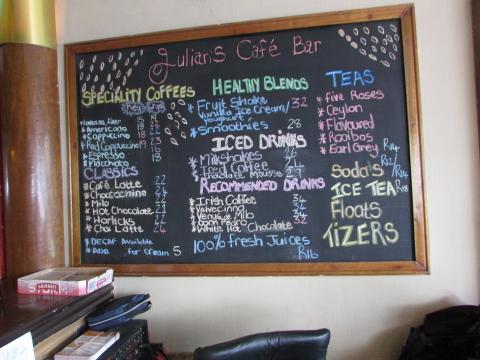 Julian's Café Bar
SPECIALITY COFFEES
Reg Lrg
Americano 15 19
Cappuccino
Red Cappuccino 19 23
Espresso 16
Macchiato 18
CLASSICS
Café Latte 22
Chococchino 24
Milo
Hot Chocolate 21
Horlicks 22
Chai Latte 24
DECAF Available
ADD for cream 5
HEALTHY BLENDS
Fruit Shake 32
Vanilla Ice Cream/
yoghurt
Smoothies 28
ICED DRINKS
Milkshakes
Iced Coffee
Chocolate Mousse
RECOMMENDED DRINKS
Irish Coffee 34
Venus de Milo 34
Dom Pedro 32
White Hot Chocolate
100% fresh Juices
R16
TEAS
five Roses
Ceylon
Flavoured
Rooibos
Earl Grey R14
Soda's R12/
R14
ICE TEA R18
Floats
TIZERS